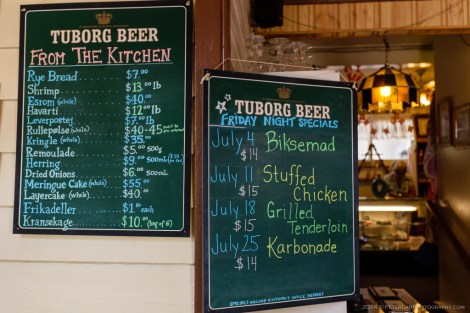 TUBORG BEER
FROM THE KITCHEN
Rye Bread $7.00
Shrimp $13.00 lb
Esrom (whole) $40.00
Havarti $12.00 lb
Leverpostej $7.00 lb
Rullepølse (whole) $40-45
Kringle (whole) $35.00
Remoulade $5.00 500g
Herring $9.00 500mL
Dried Onions $6.00 500mL
Meringue Cake (whole) $55.00
Layercake (whole) $40.00
Frikadeller $1.00 each
Kransekage $10.00 (bag of 6)
TUBORG BEER
FRIDAY NIGHT SPECIALS
July 4 Biksemad
$14
July 11 Stuffed
$15 Chicken
July 18 Grilled
$15 Tenderloin
July 25 Karbonade
$14